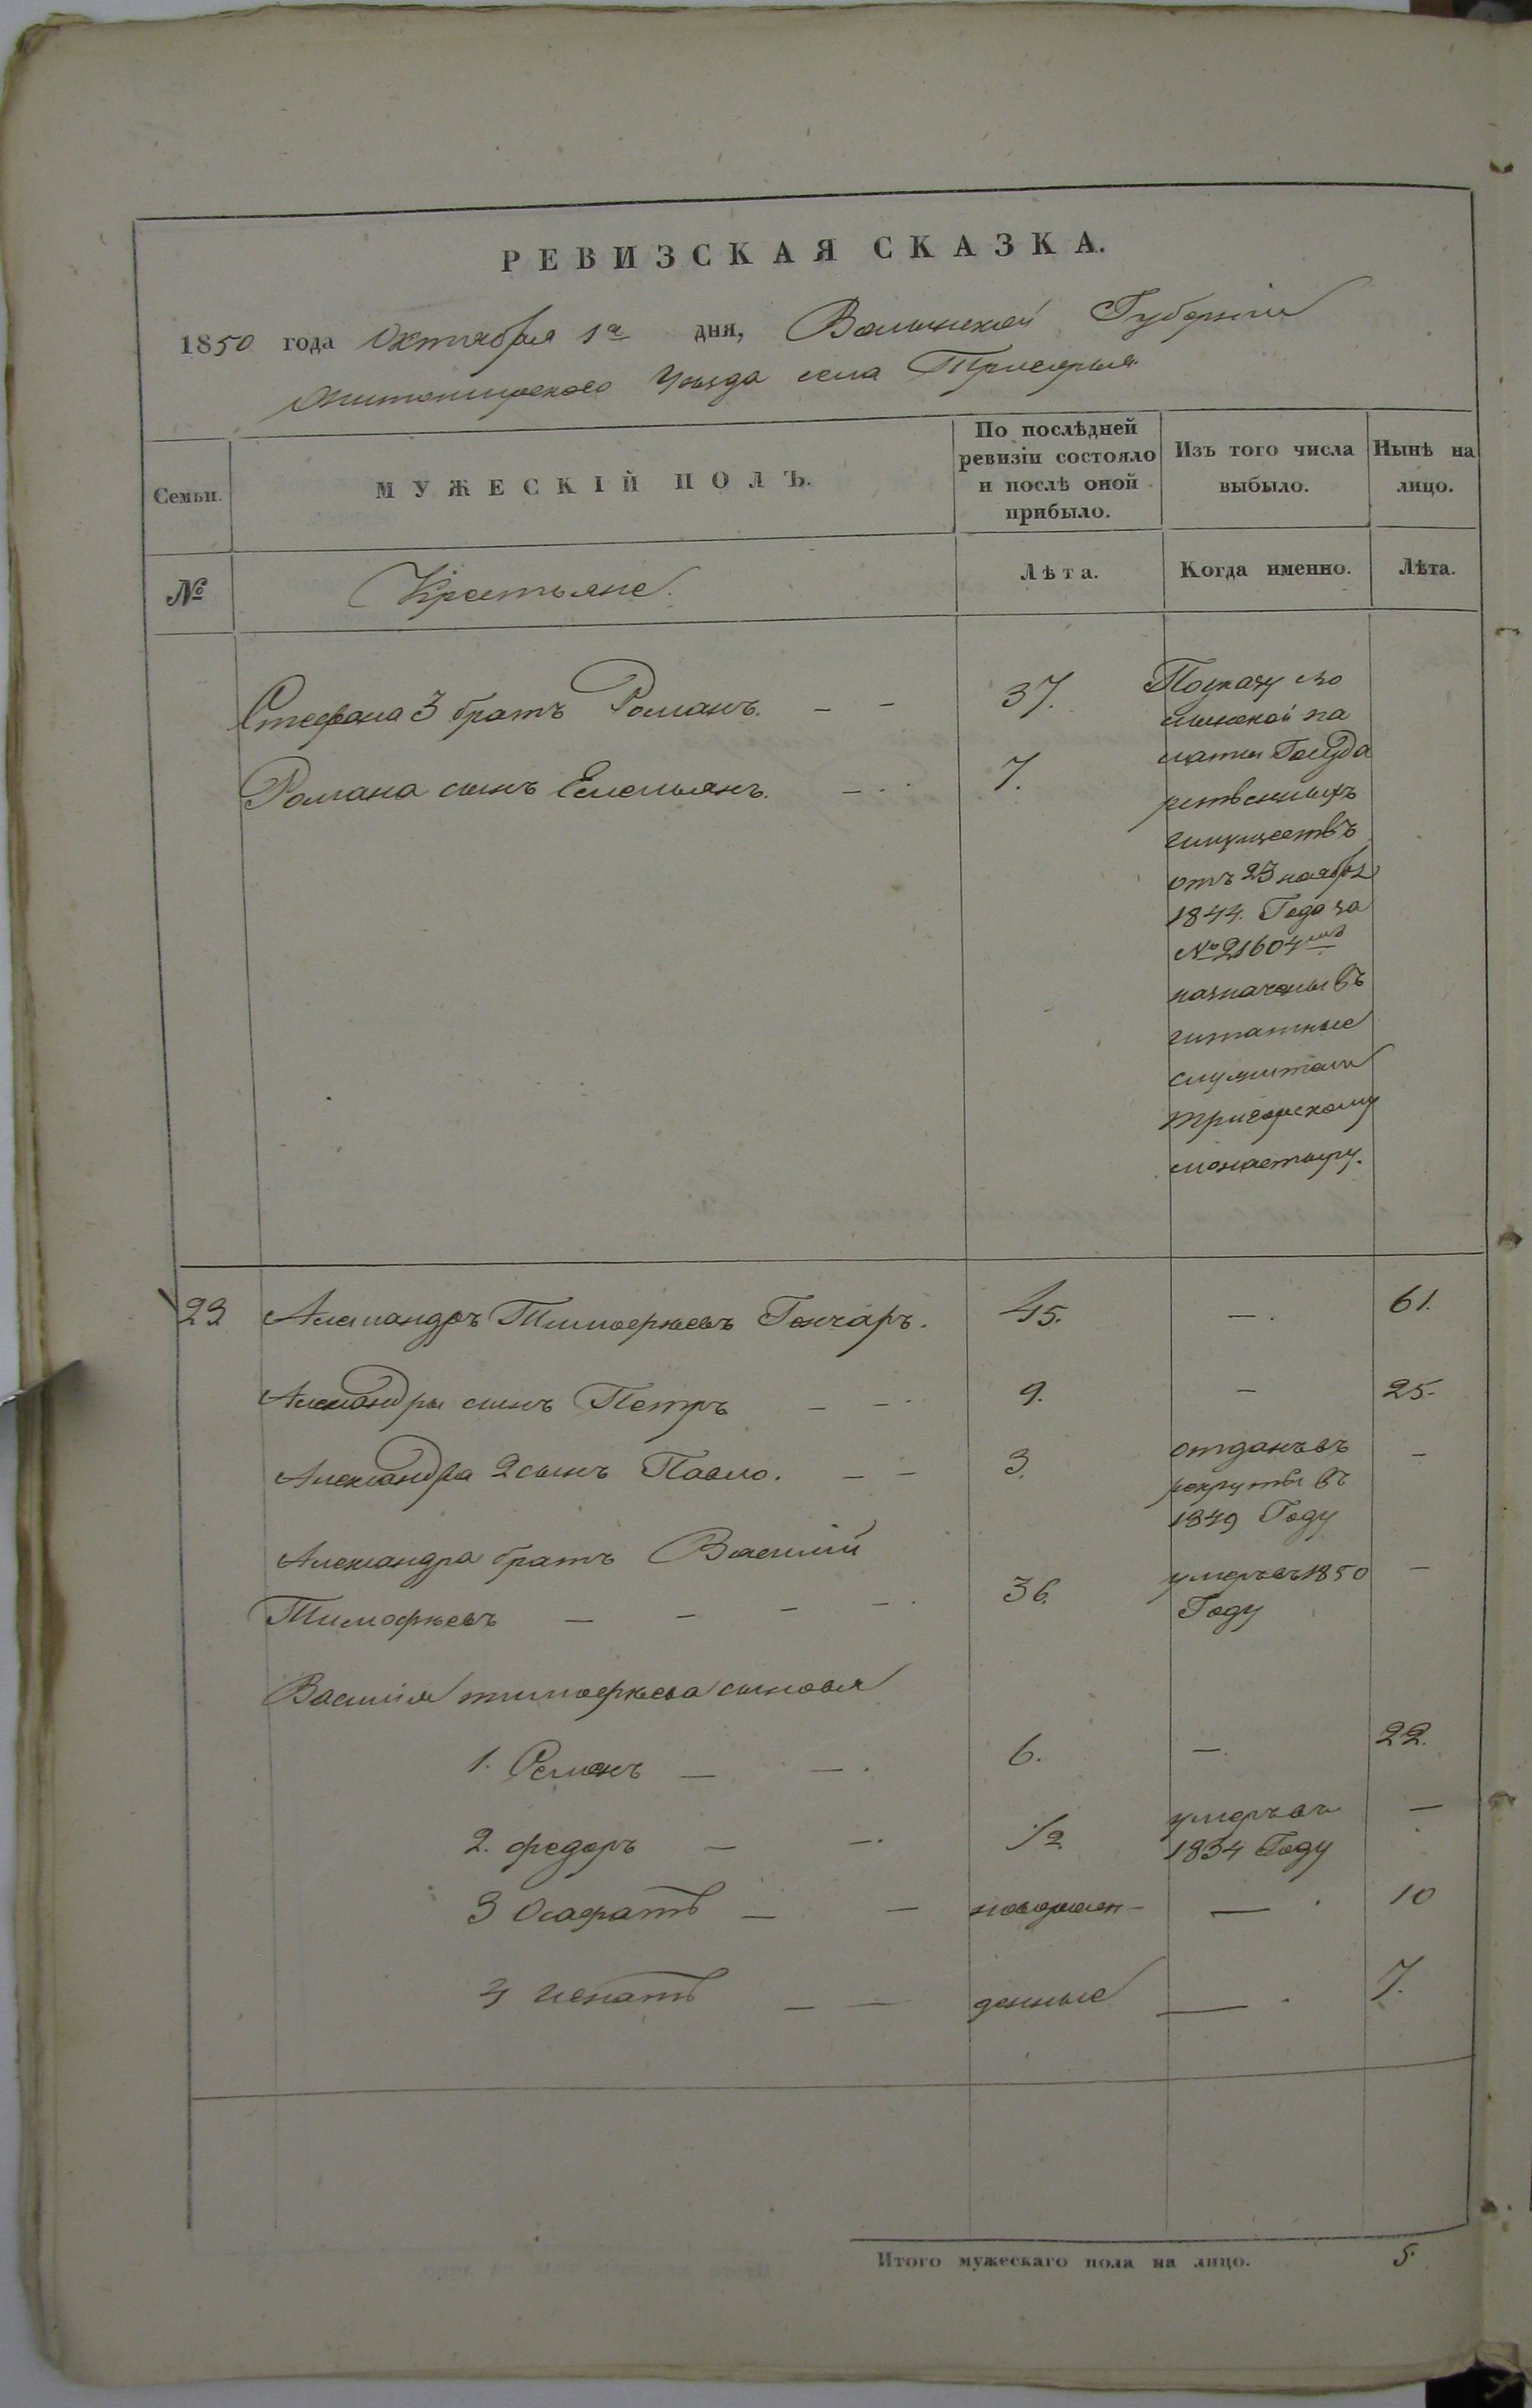 РЕВИЗСКАЯ СКАЗКА.
1850 года Октября 1го дня, Волынской Губерніи
Житомирскаго Уезда села Тригорья
Семьи.
МУЖЕСКІЙ ПОЛЪ.
По послѣдней ревизіи состояло и послѣ оной прибыло.
Изъ того числа выбыло.
Нынѣ на лицо.
№
Крестьяне.
Лѣта.
Когда именно.
Лѣта.
Стефана 3 братъ Романъ. — — 37.
Романа сынъ Емельянъ. — 7.
По указу во
лынской па
латы Госуда
рственныхъ
имуществъ
отъ 23 ноября
1844. Года за
№ 21604мъ
назначены въ
штатные
служители
тригорскому
монастырю.
23 Александръ Тимофѣевъ Гончаръ. 45. — 61.
Александры сынъ Петръ — — 9. — 25.
Александра 2 сынъ Павло. — — 3. отданъ въ рекруты въ 1849 Году —
Александра братъ Василій
Тимофѣевъ — — — — 36. умеръ въ 1850 Году —
Василія тимофѣева сыновья
1. Семенъ — — 6. — 22.
2. федоръ — — 1/2 умеръ въ 1834 Году —
3 Осафатъ — — новорожен- — 10
4 Игнатъ — — денные — 7.
Итого мужескаго пола на лицо. 5.